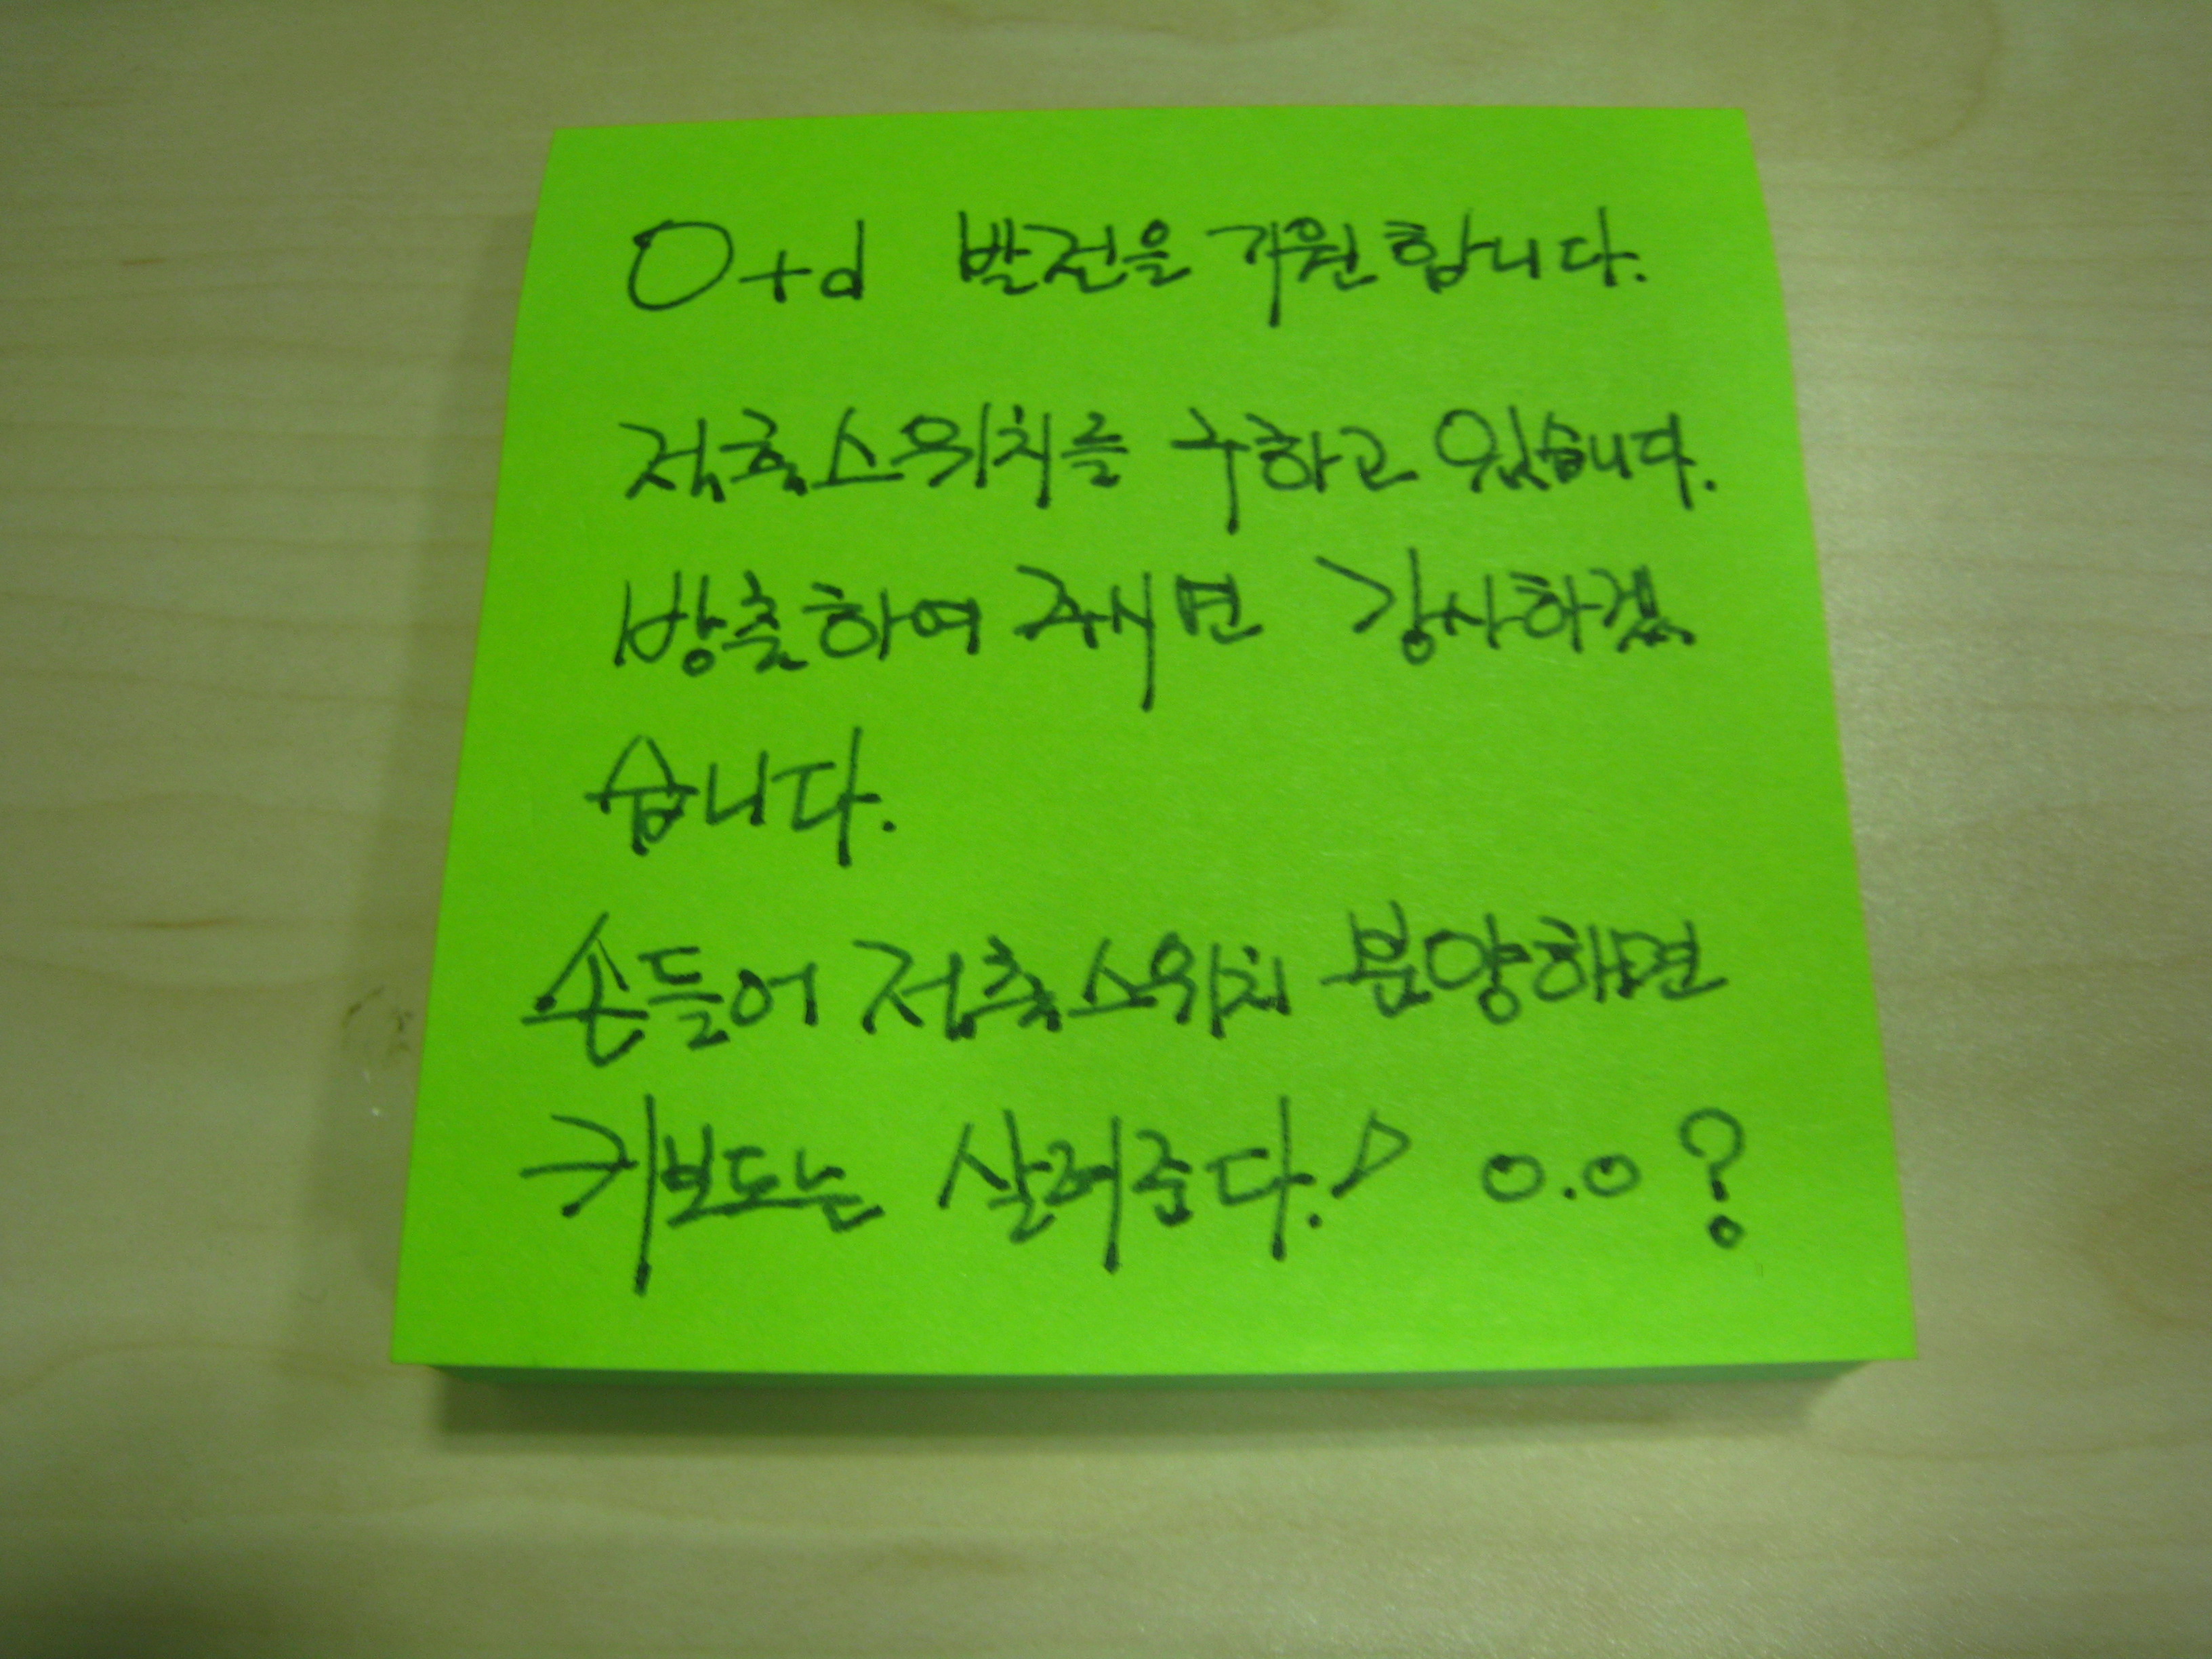 O+d 발전을 기원합니다.
접축스위치를 구하고 있습니다.
방출하여 주시면 감사하겠
습니다.
손들어 접축스위치 분양하면
키보드는 살려준다! o.o?